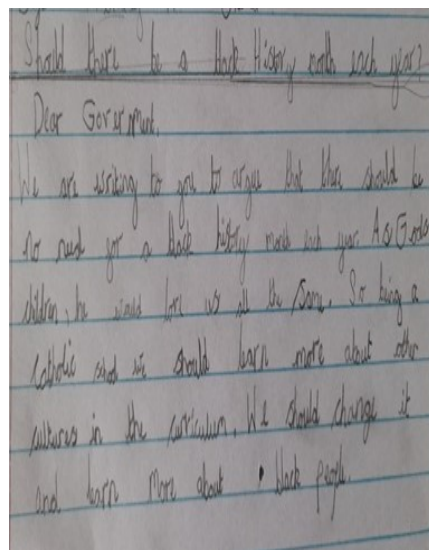 Should there be a black History month each year?
Dear Government,
We are writing to you to argue that there should be
no need for a black history month each year. As Gods
children, he would love us all the same. So being a
catholic school we should learn more about other
cultures in the curriculum. We should change it
and learn more about black people.